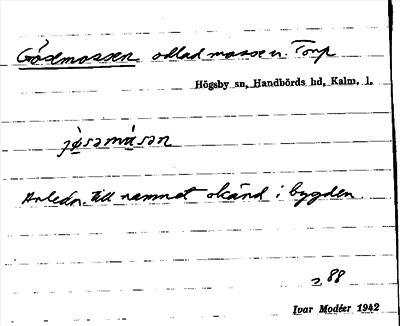 Gösemossen odlad mosse n. Torp
Högsby sn, Handbörds hd, Kalm. l.
Anledn. till namnet okänd i bygden.
88
Ivar Modéer 1942